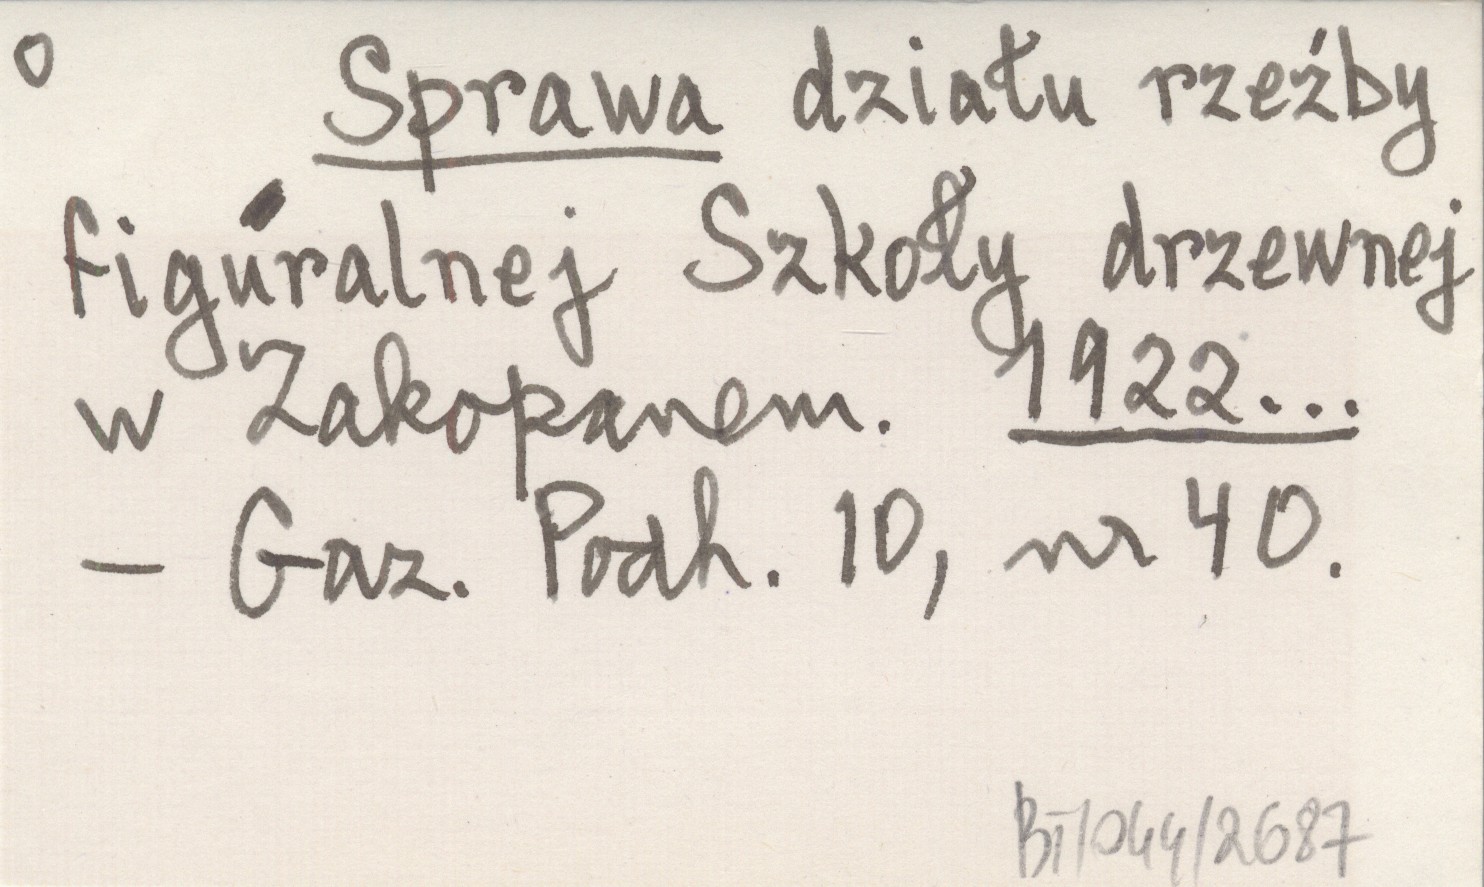 o Sprawa działu rzeźby
figuralnej Szkoły drzewnej
w Zakopanem. 1922...
- Gaz. Podh. 10, nr 40.
BT/044/2687